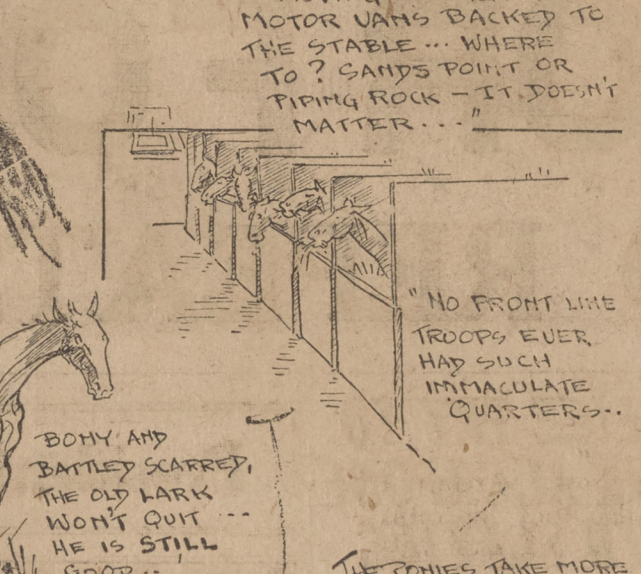 MOTOR VANS BACKED TO
THE STABLE... WHERE
TO? SANDS POINT OR
PIPING ROCK – IT DOESN'T
MATTER..."
"NO FRONT LINE
TROOPS EVER
HAD SUCH
IMMACULATE
QUARTERS..
BONY AND
BATTLED SCARRED,
THE OLD LARK
WON'T QUIT ...
HE IS STILL
GOOD...
THE PONIES TAKE MORE